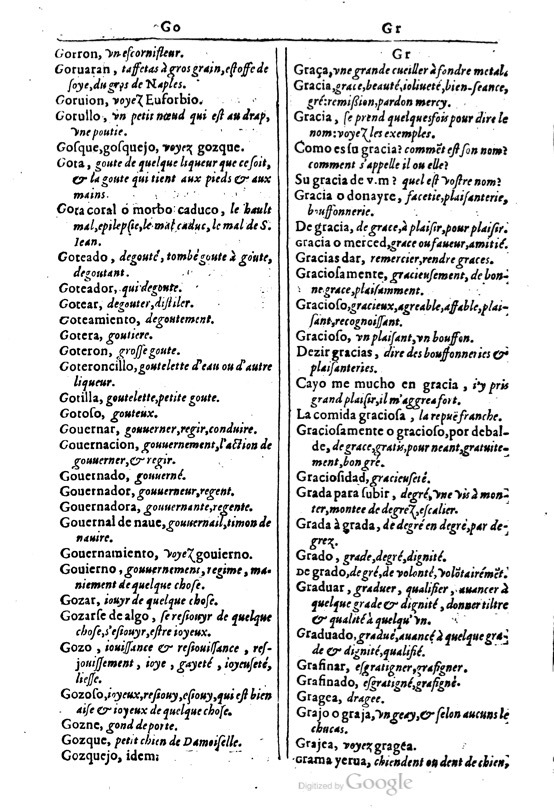 Go
Gorron, vn escornifleur.
Goruaran, taffetas à gros grain, estoffe de
soye, du gros de Naples.
Goruion, voyez Euforbio.
Gorullo, vn petit nœud qui est au drap,
vne poutie.
Gosque, gosquejo, voyez gozque.
Gota, goute de quelque liqueur que ce soit,
& la goute qui tient aux pieds & aux
mains.
Gota coral o morbo caduco, le hault
mal, epilepsie, le mal caduc, le mal de S.
Iean.
Goteado, degouté, tombé goute à goute,
degoutant.
Goteador, qui degoute.
Gotear, degouter, distiler.
Goteamiento, degoutement.
Gotera, goutiere.
Goteron, grosse goute.
Goteroncillo, goutelette d'eau ou d'autre
liqueur.
Gotilla, goutelette, petite goute.
Gotoso, gouteux.
Gouernar, gouuerner, regir, conduire.
Gouernacion, gouuernement, l'action de
gouuerner, & regir.
Gouernado, gouuerné.
Gouernador, gouuerneur, regent.
Gouernadora, gouuernante, regente.
Gouernal de naue, gouuernail, timon de
nauire.
Gouernamiento, voyez gouierno.
Gouierno, gouuernement, regime, ma-
niement de quelque chose.
Gozar, iouyr de quelque chose.
Gozarse de algo, se resiouyr de quelque
chose, s'esiouyr, estre ioyeux.
Gozo, iouissance & resiouissance, res-
jouissement, ioye, gayeté, ioyeuseté,
liesse.
Gozoso, ioyeux, resiouy, esiouy, qui est bien
aise & ioyeux de quelque chose.
Gozne, gond de porte.
Gozque, petit chien de Damoiselle.
Gozquejo, idem.
Gr
Gr
Graça, vne grande cueiller à fondre metal.
Gracia, grace, beauté, iolueté, bien-seance,
gré: remission, pardon mercy.
Gracia, se prend quelquesfois pour dire le
nom: voyez les exemples.
Como es su gracia? commēt est son nom?
comment s'appelle il ou elle?
Su gracia de v.m? quel est vostre nom?
Gracia o donayre, facetie, plaisanterie,
bouffonnerie.
De gracia, de grace, à plaisir, pour plaisir.
Gracia o merced, grace ou faueur, amitié.
Gracias dar, remercier, rendre graces.
Graciosamente, gracieusement, de bon-
ne grace, plaisamment.
Gracioso, gracieux, agreable, affable, plai-
sant, recognoissant.
Gracioso, vn plaisant, vn bouffon.
Dezir gracias, dire des bouffonneries &
plaisanteries.
Cayo me mucho en gracia, i'y pris
grand plaisir, il m'aggrea fort.
La comida graciosa, la repuë franche.
Graciosamente o gracioso, por debal-
de, de grace, gratis, pour neant, gratuite-
ment, bon gré.
Graciosidad, gracieuseté.
Grada para subir, degré, vne vis à mon-
ter, montee de degrez, escalier.
Grada à grada, de degré en degré, par de-
grez.
Grado, grade, degré, dignité.
De grado, de gré, de volonté, volōtairemēt.
Graduar, graduer, qualifier, auancer à
quelque grade & dignité, donner tiltre
& qualité à quelqu'vn.
Graduado, gradué, auancé à quelque gra-
de & dignité, qualifié.
Grafinar, esgratigner, grafigner.
Grafinado, esgratigné, grafigné.
Gragea, dragee.
Grajo o graja, vn geay, & selon aucuns le
chucas.
Grajea, voyez gragéa.
Grama yerua, chiendent ou dent de chien,
Digitized by Google